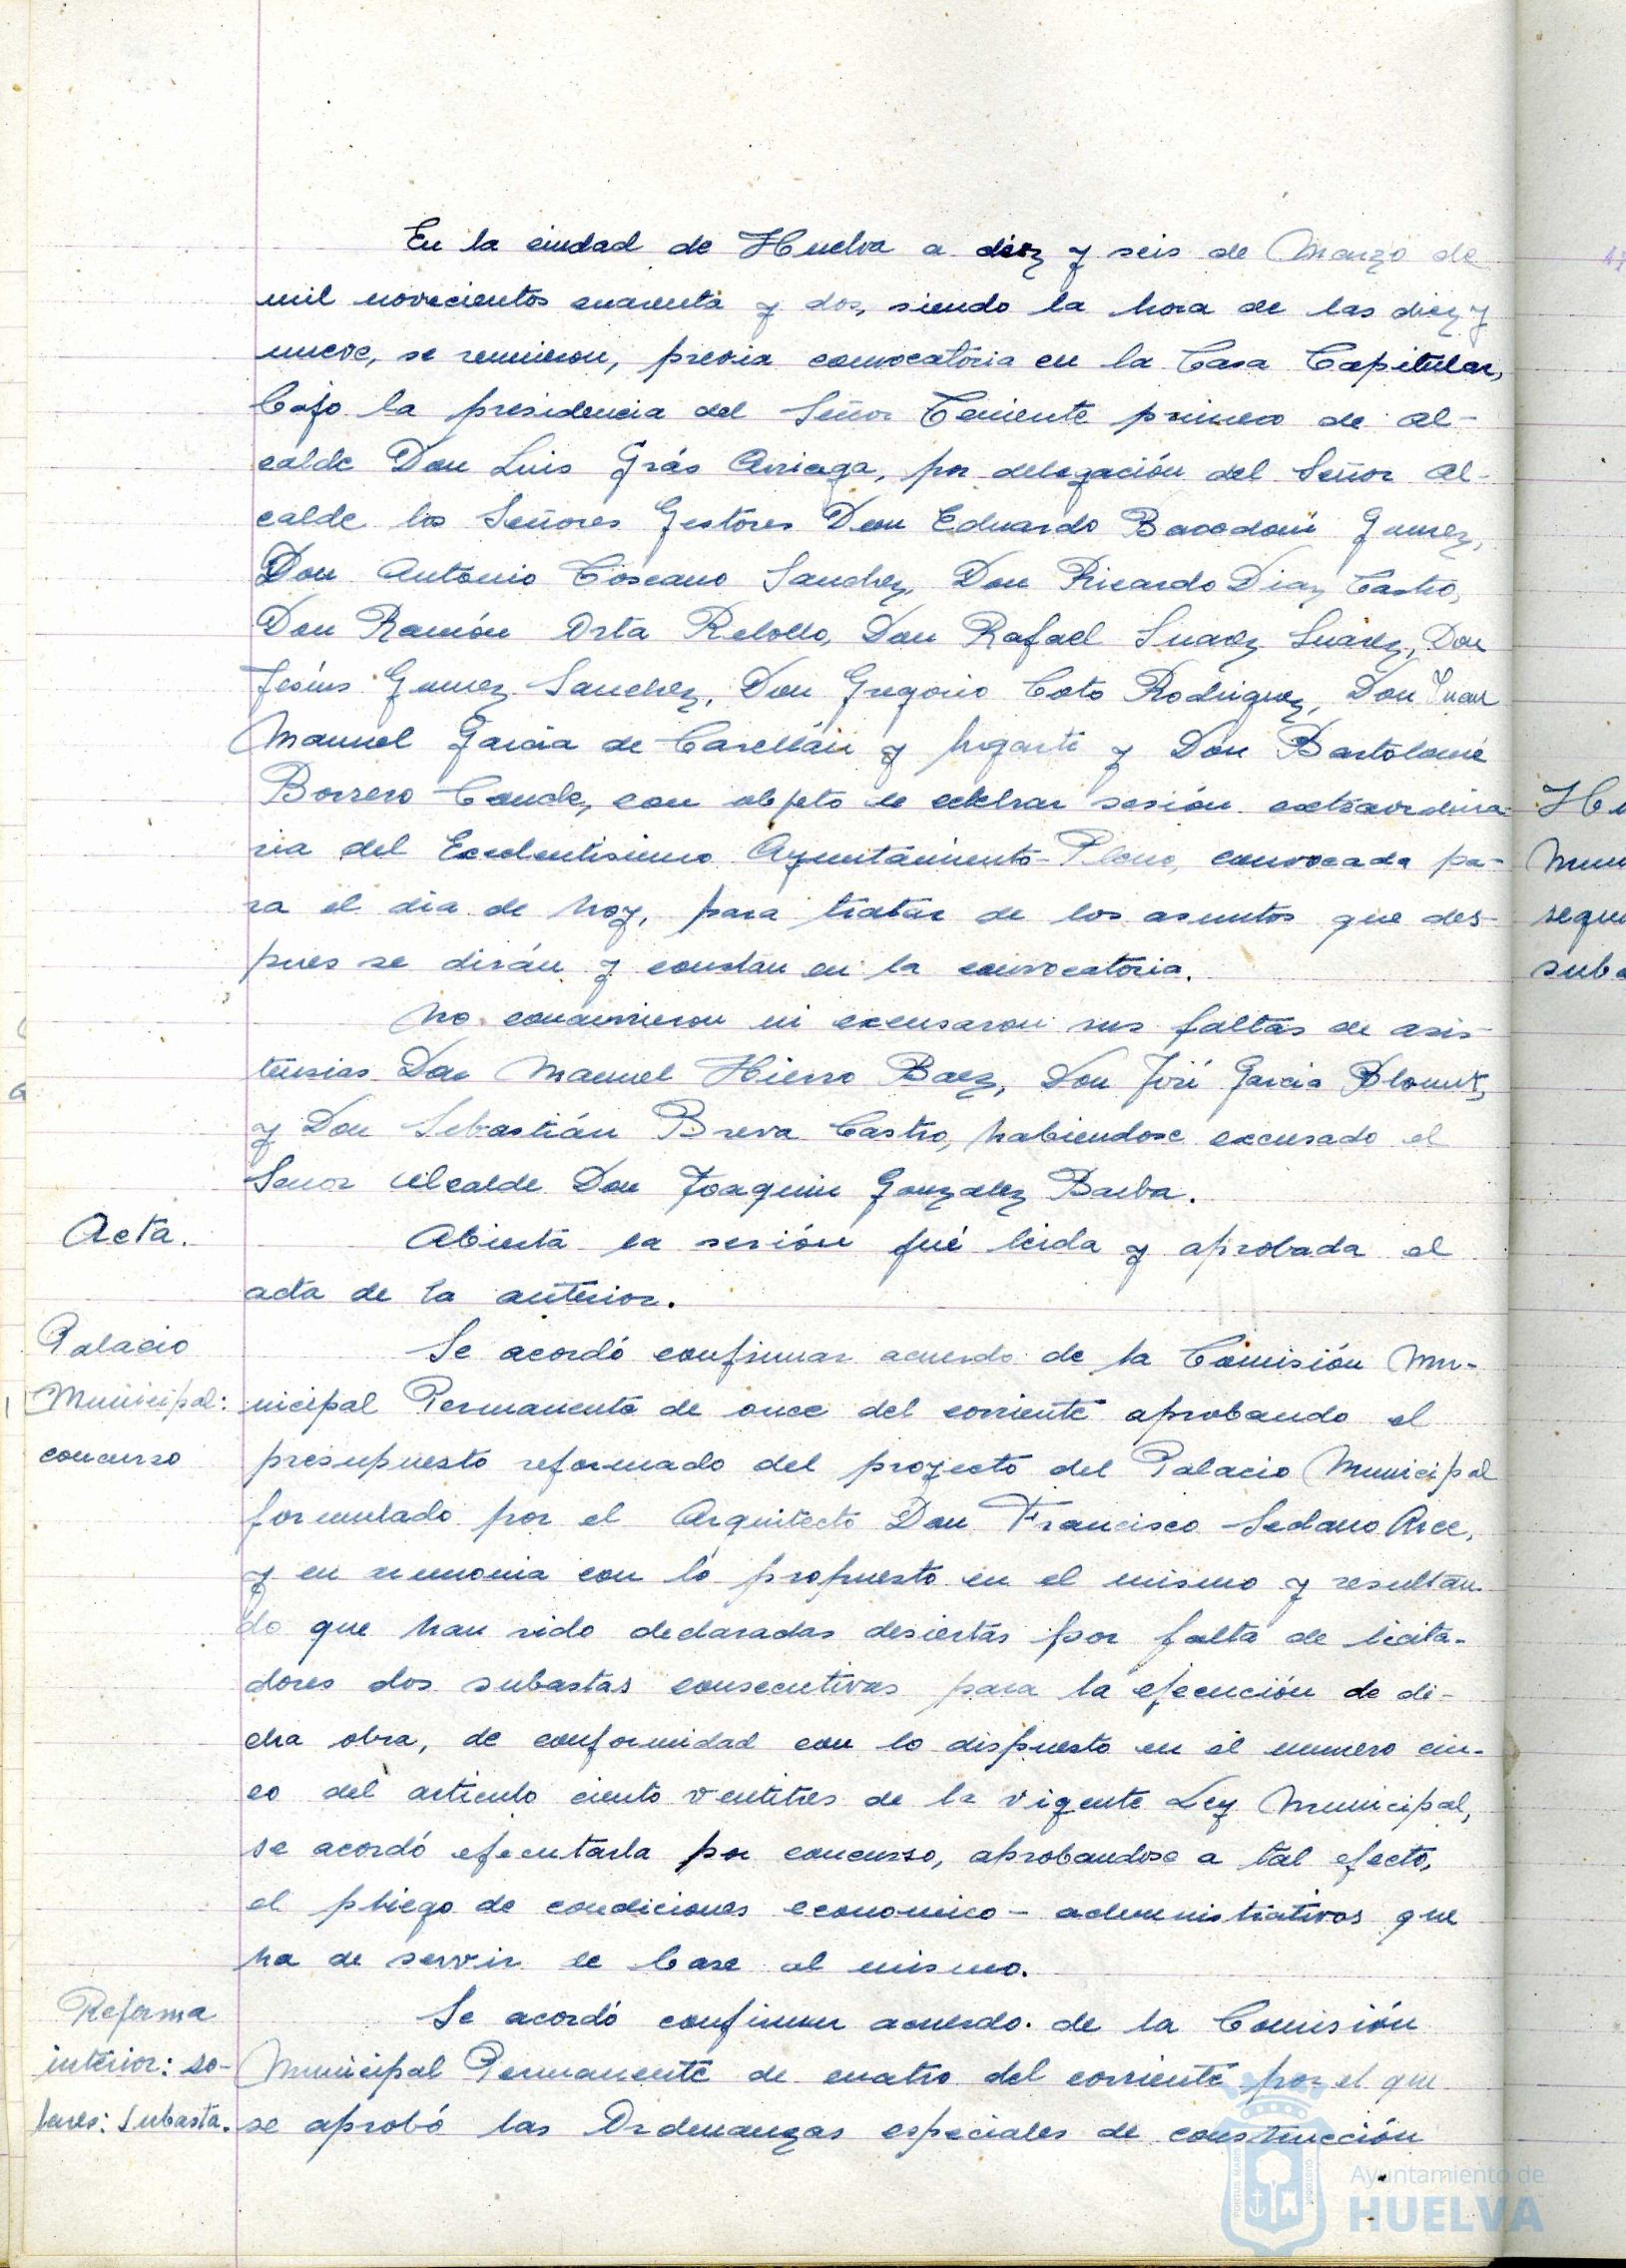 En la ciudad de Huelva a diez y seis de Marzo de
mil novecientos cuarenta y dos, siendo la hora de las diez y
nueve, se reunieron, previa convocatoria en la Casa Capitular,
bajo la presidencia del Señor Teniente primero de Al-
calde Don Luis Grás Arriaga, por delegación del Señor Al-
calde los Señores Gestores Don Eduardo Gumez,
Don Antonio Toscano Sanchez, Don Ricardo Diaz Castro,
Don Ramón Orta Rebollo, Don Rafael Suarez Suarez, Don
Jesús Gumez Sanchez, Don Gregorio Coto Rodriguez, Don Juan
Manuel Garcia de y y Don Bartolomé
Borrero Conde, con objeto de celebrar sesión extraordina-
ria del Excelentisimo Ayuntamiento-Pleno, convocada pa-
ra el dia de hoy, para tratar de los asuntos que des-
pues se dirán y constan en la convocatoria.
No concurrieron ni excusaron sus faltas de asis-
tensias Don Manuel Hierro Baez, Don José Garcia
y Don Sebastián Breva Castro, habiendose excusado el
Señor Alcalde Don Joaquin Gonzalez Barba.
Acta.
Abierta la sesión fué leida y aprobada el
acta de la anterior.
Palacio
Municipal:
concurso
Se acordó confirmar acuerdo de la Comisión Mu-
nicipal Permanente de once del corriente aprobando el
presupuesto reformado del proyecto del Palacio Municipal
formulado por el Arquitecto Don Francisco Sedano Arce,
y en armonia con lo propuesto en el mismo y resultan
do que han sido declaradas desiertas por falta de licita-
dores dos subastas consecutivas para la ejecución de di-
cha obra, de conformidad con lo dispuesto en el numero cin-
co del articulo ciento ventitres de la vigente Ley Municipal,
se acordó ejecutarla por concurso, aprobandose a tal efecto,
el pliego de condiciones economico-administrativas que
ha de servir de base al mismo.
Reforma
interior: so-
lares: Subasta.
Se acordó confirmar acuerdo de la Comisión
Municipal Permanente de cuatro del corriente por el que
se aprobó las Ordenanzas especiales de construcción
Ayuntamiento de
HUELVA